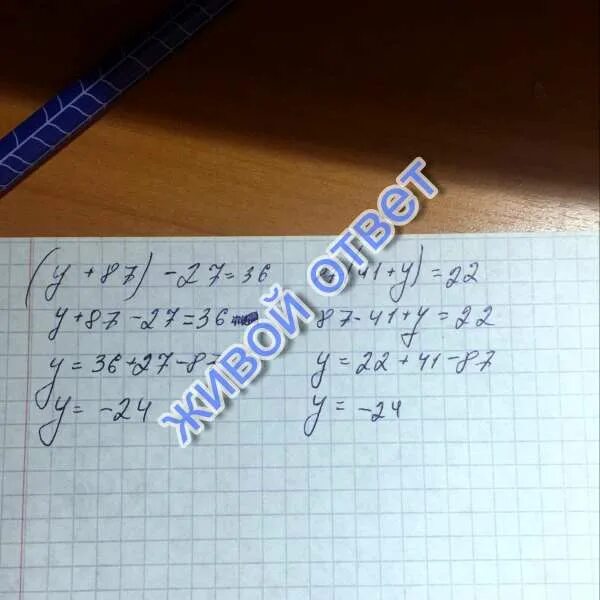 (y + 87) - 27 = 36
y + 87 - 27 = 36
y = 36 + 27 - 8
y = -24
41 + y) = 22
87 - 41 + y = 22
y = 22 + 41 - 87
y = -24
ЖИВОЙ ОТВЕТ